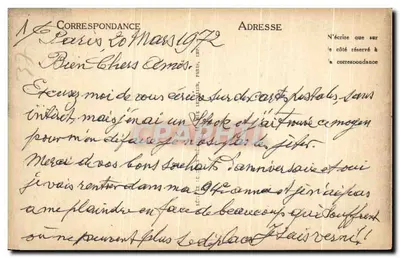 CORRESPONDANCE
ADRESSE
N'écrire que sur
le côté réservé à
la correspondance
1
Paris 20 Mars 1972
Bien Chers Amis.
Excusez moi de vous écrire sur des cartes postales sans
intérêt mais j'en ai un Stock et j'ai trouvé ce moyen
pour m'en défaire je ne les jeter.
Merci de vos bons souhaits d'anniversaire et oui
je vais rentrer dans ma 94e année et je n'ai pas
a me plaindre en face de beaucoup qui souffrent
ou ne peuvent plus se déplacer Je suis verni!!
CPARAMA